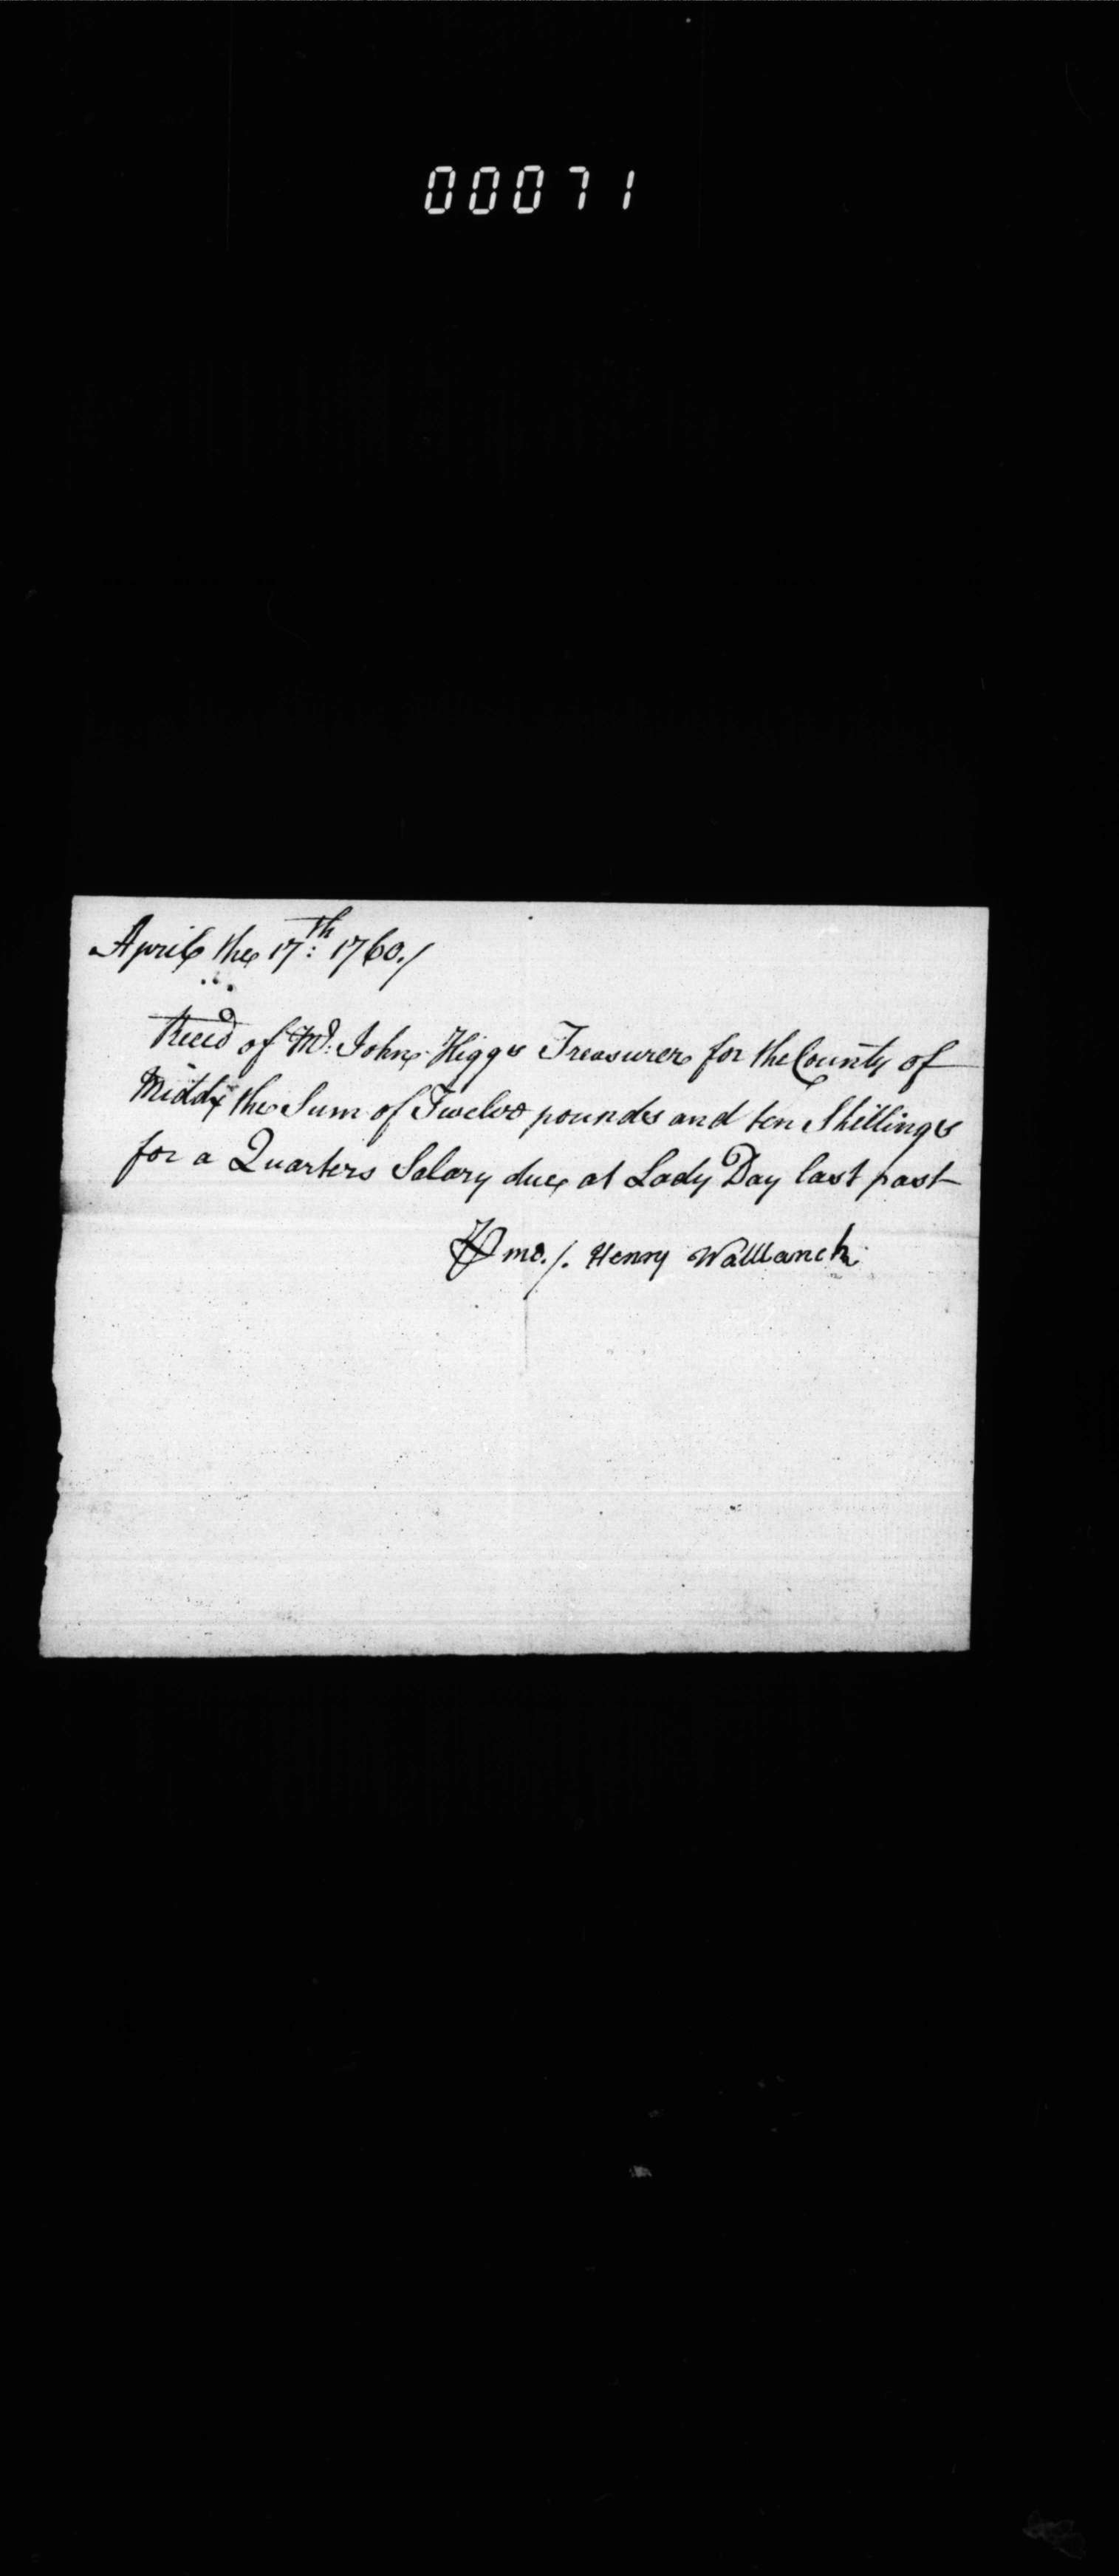 00071
April the 17th: 1760./
Reced of Mr. John Higgs Treasurer for the County of
Middx the Sum of Twelve pounds and ten Shillings
for a Quarters Salary due at Lady Day last past
⅌ me./. Henry Walllanch